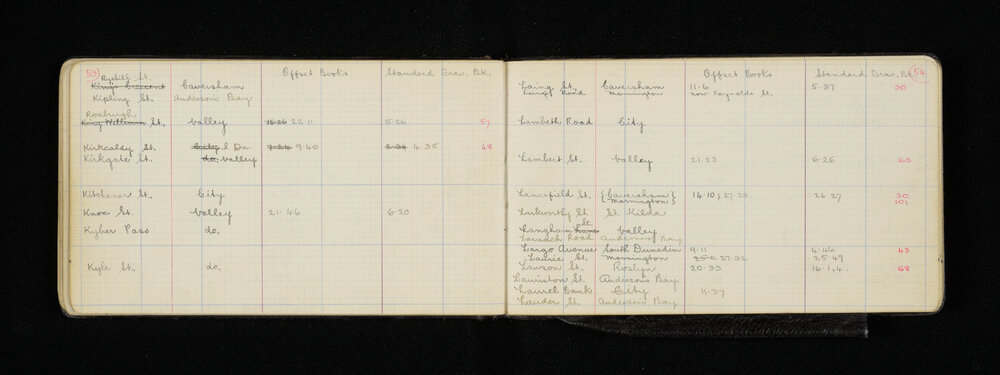 53
Offset Books Standard Trav. Bk.
Ryehill St.
King's Crescent Caversham
Kipling St. Andersons Bay
Roxburgh
King William St. Valley 15·26 22·11 15·26 57
Kirkcaldy St. City S. Dn. 7·24 9·40 2·34 4·35 48
Kirkgate St. do. Valley
Kitchener St. City
Knox St. Valley 21·46 6·20
Kyber Pass do.
Kyle St. do.
54
Offset Books Standard Trav. Bk
Laing St. Caversham 11·6 5·37 30
Road Mornington now Reynolds St.
Lambeth Road City
Lambert St. Valley 21·23 6·26 63
Lancefield St. {Caversham} 14·10; 27·23 26·27 30
{Mornington} 101
Larkworthy St. St. Kilda
Langham St. Valley
Larndah Road Andersons Bay
Largo Avenue South Dunedin 9·11 4·46 43
Laurie St. Mornington 27·32 25·49
Lawson St. Roslyn 20·33 16·1,4. 68
Lauriston St. Andersons Bay
Laurel Bank City 11·37
Lauder St. Andersons Bay